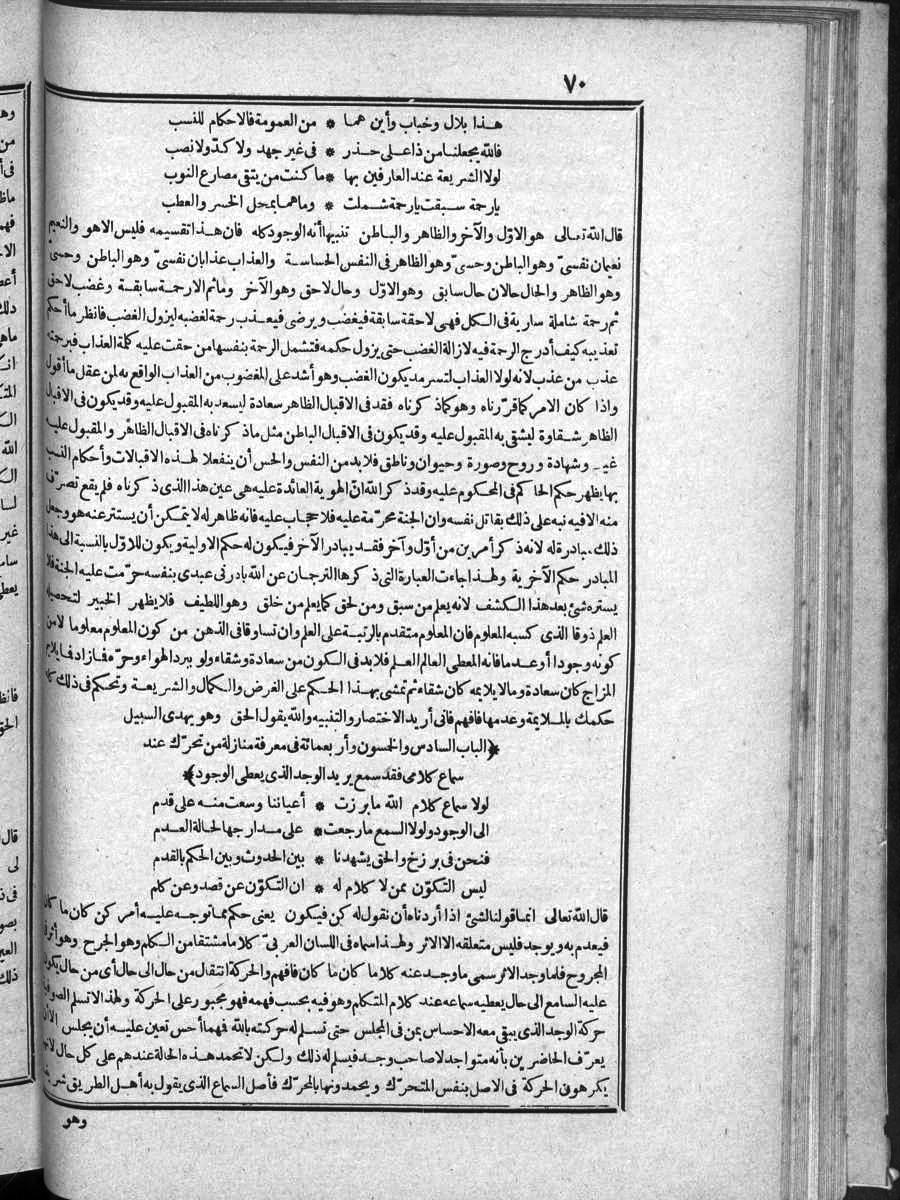 ٧٠
هذا بلال وخباب وأين هما * من العمومة فالاحكام للنسب
فالله يجعلنا من ذا على حذر * فى غير جهد ولا كدّ ولا نصب
لولا الشريعة عند العارفين بها * ما كنت من يتقى مصارع النوب
يا رحمة سبقت يا رحمة شملت * وما هما بمحل الخسر والعطب
قال الله تعالى هو الاوّل والآخر والظاهر والباطن تنبيها أنه الوجود كله فان هذا تقسيمه فليس الا هو والنعيم
نعيمان نفسىّ وهو الباطن وحسىّ وهو الظاهر فى النفس الحساسة والعذاب عذابان نفسىّ وهو الباطن وحسىّ
وهو الظاهر والحال حالان حال سابق وهو الاوّل وحال لاحق وهو الآخر وما ثم الا رحمة سابقة وغضب لاحق
ثم رحمة شاملة سارية فى الكل فهى لاحقة سابقة فيغضب ويرضى فيعذب رحمة لغضبه ليزول الغضب فانظر ما أحكم
تعذيبه كيف أدرج الرحمة فيه لازالة الغضب حتى يزول حكمه فتشمل الرحمة بنفسها من حقت عليه كلمة العذاب فبرحمته
عذب من عذب لانه لولا العذاب لتسرمد يكون الغضب وهو أشد على المغضوب من العذاب الواقع به لمن عقل ما أقول
واذا كان الامر كما قرّرناه وهو كما ذكرناه فقد فى الاقبال الظاهر سعادة ليسعد به المقبول عليه وقد يكون فى الاقبال
الظاهر شقاوة ليشقى به المقبول عليه وقد يكون فى الاقبال الباطن مثل ما ذكرناه فى الاقبال الظاهر والمقبول عليه
غيب وشهادة وروح وصورة وحيوان وناطق فلا بد من النفس والحس أن ينفعلا لهذه الاقبالات وأحكام النسب
بها يظهر حكم الحاكم فى المحكوم عليه وقد ذكر الله انّ الهوية العائدة عليه هى عين هذا الذى ذكرناه فلم يقع تصرّف
منه الا فيه نبه على ذلك بقاتل نفسه وان الجنة محرّمة عليه فلا حجاب عليه فانه ظاهر له لا يتمكن أن يستتر عنه هو وجعل
ذلك مبادرة له لانه ذكر أمرين من أوّل وآخر فقد يبادر الآخر فيكون له حكم الاولية ويكون للاوّل بالنسبة الى هذا
المبادر حكم الآخرية ولهذا جاءت العبارة التى ذكرها الترجمان عن الله بادرنى عبدى بنفسه حرّمت عليه الجنة فلا
يستره شئ بعد هذا الكشف لانه يعلم من سبق ومن لحق كما يعلم من خلق وهو اللطيف فلا يظهر الخبير لتحصيله
العلم ذوقا الذى كسبه المعلوم فان المعلوم متقدم بالرتبة على العلم وان تساوقا فى الذهن من كون المعلوم معلوما لا من
كونه وجودا أو عدما فانه المعطى العالم العلم فلا بد فى الكون من سعادة وشقاء ولو ببرد الهواء وحرّه فما زاد فما يلايم
المزاج كان سعادة وما لا يلايمه كان شقاء ثم تمشى بهذا الحكم على الغرض والكمال والشريعة وتحكم فى ذلك كله
حكمك بالملايمة وعدمها فافهم فانى أريد الاختصار والتنبيه والله يقول الحق وهو يهدى السبيل
﴿الباب السادس والخمسون وأربعمائة فى معرفة منازلة من تحرّك عند
سماع كلامى فقد سمع يريد الوجد الذى يعطى الوجود﴾
لولا سماع كلام الله ما برزت * أعياننا وسعت منه على قدم
الى الوجود ولولا السمع ما رجعت * على مدارجها لحالة العدم
فنحن فى برزخ والحق يشهدنا * بين الحدوث وبين الحكم بالقدم
ليس التكوّن ممن لا كلام له * ان التكوّن عن قصد وعن كلم
قال الله تعالى انما قولنا لشئ اذا أردناه أن نقول له كن فيكون يعنى حكم ما توجه عليه أمر كن كان ما كان
فيعدم به ويوجد فليس متعلقه الا الاثر ولهذا سماه فى اللسان العربىّ كلاما مشتقا من الكلم وهو الجرح وهو أثر فى
المجروح فلما وجد الاثر سمى ما وجد عنه كلاما كان ما كان فافهم والحركة انتقال من حال الى حال أى من حال يكون
عليه السامع الى حال يعطيه سماعه عند كلام المتكلم وهو فيه بحسب فهمه فهو مجبور على الحركة ولهذا لا تسلم الصوفية
حركة الوجد الذى يبقى معه الاحساس بمن فى المجلس حتى تسلم له حركته بالله فهما أحس تعين عليه أن يجلس الا أن
يعرّف الحاضرين بأنه متواجد لا صاحب وجد فيسلم له ذلك ولكن لا تحمد هذه الحالة عندهم على كل حال لانهم
يكرهون الحركة فى الاصل بنفس المتحرّك ويحمدونها بالمحرّك فأصل السماع الذى يقول به أهل الطريق شريف
وهو